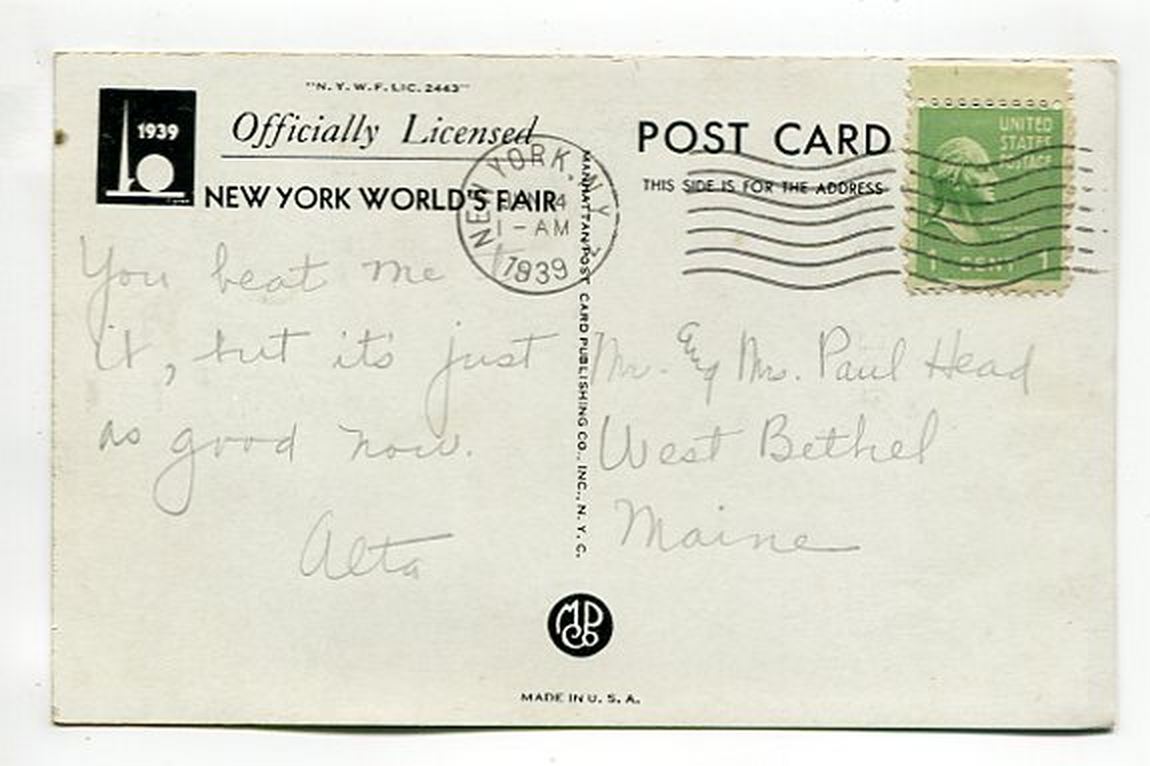 "N. Y. W. F. LIC. 2443"
1939
Officially Licensed
NEW YORK WORLD'S FAIR
POST CARD
THIS SIDE IS FOR THE ADDRESS
UNITED
STATES
POSTAGE
1 CENT 1
NEW YORK, N.Y.
1-AM
1939
You beat me to
it, but it's just
as good now.
Alta
MANHATTAN POST CARD PUBLISHING CO., INC., N. Y. C.
Mr. and Mrs. Paul Head
West Bethel
Maine
MPCo
MADE IN U. S. A.